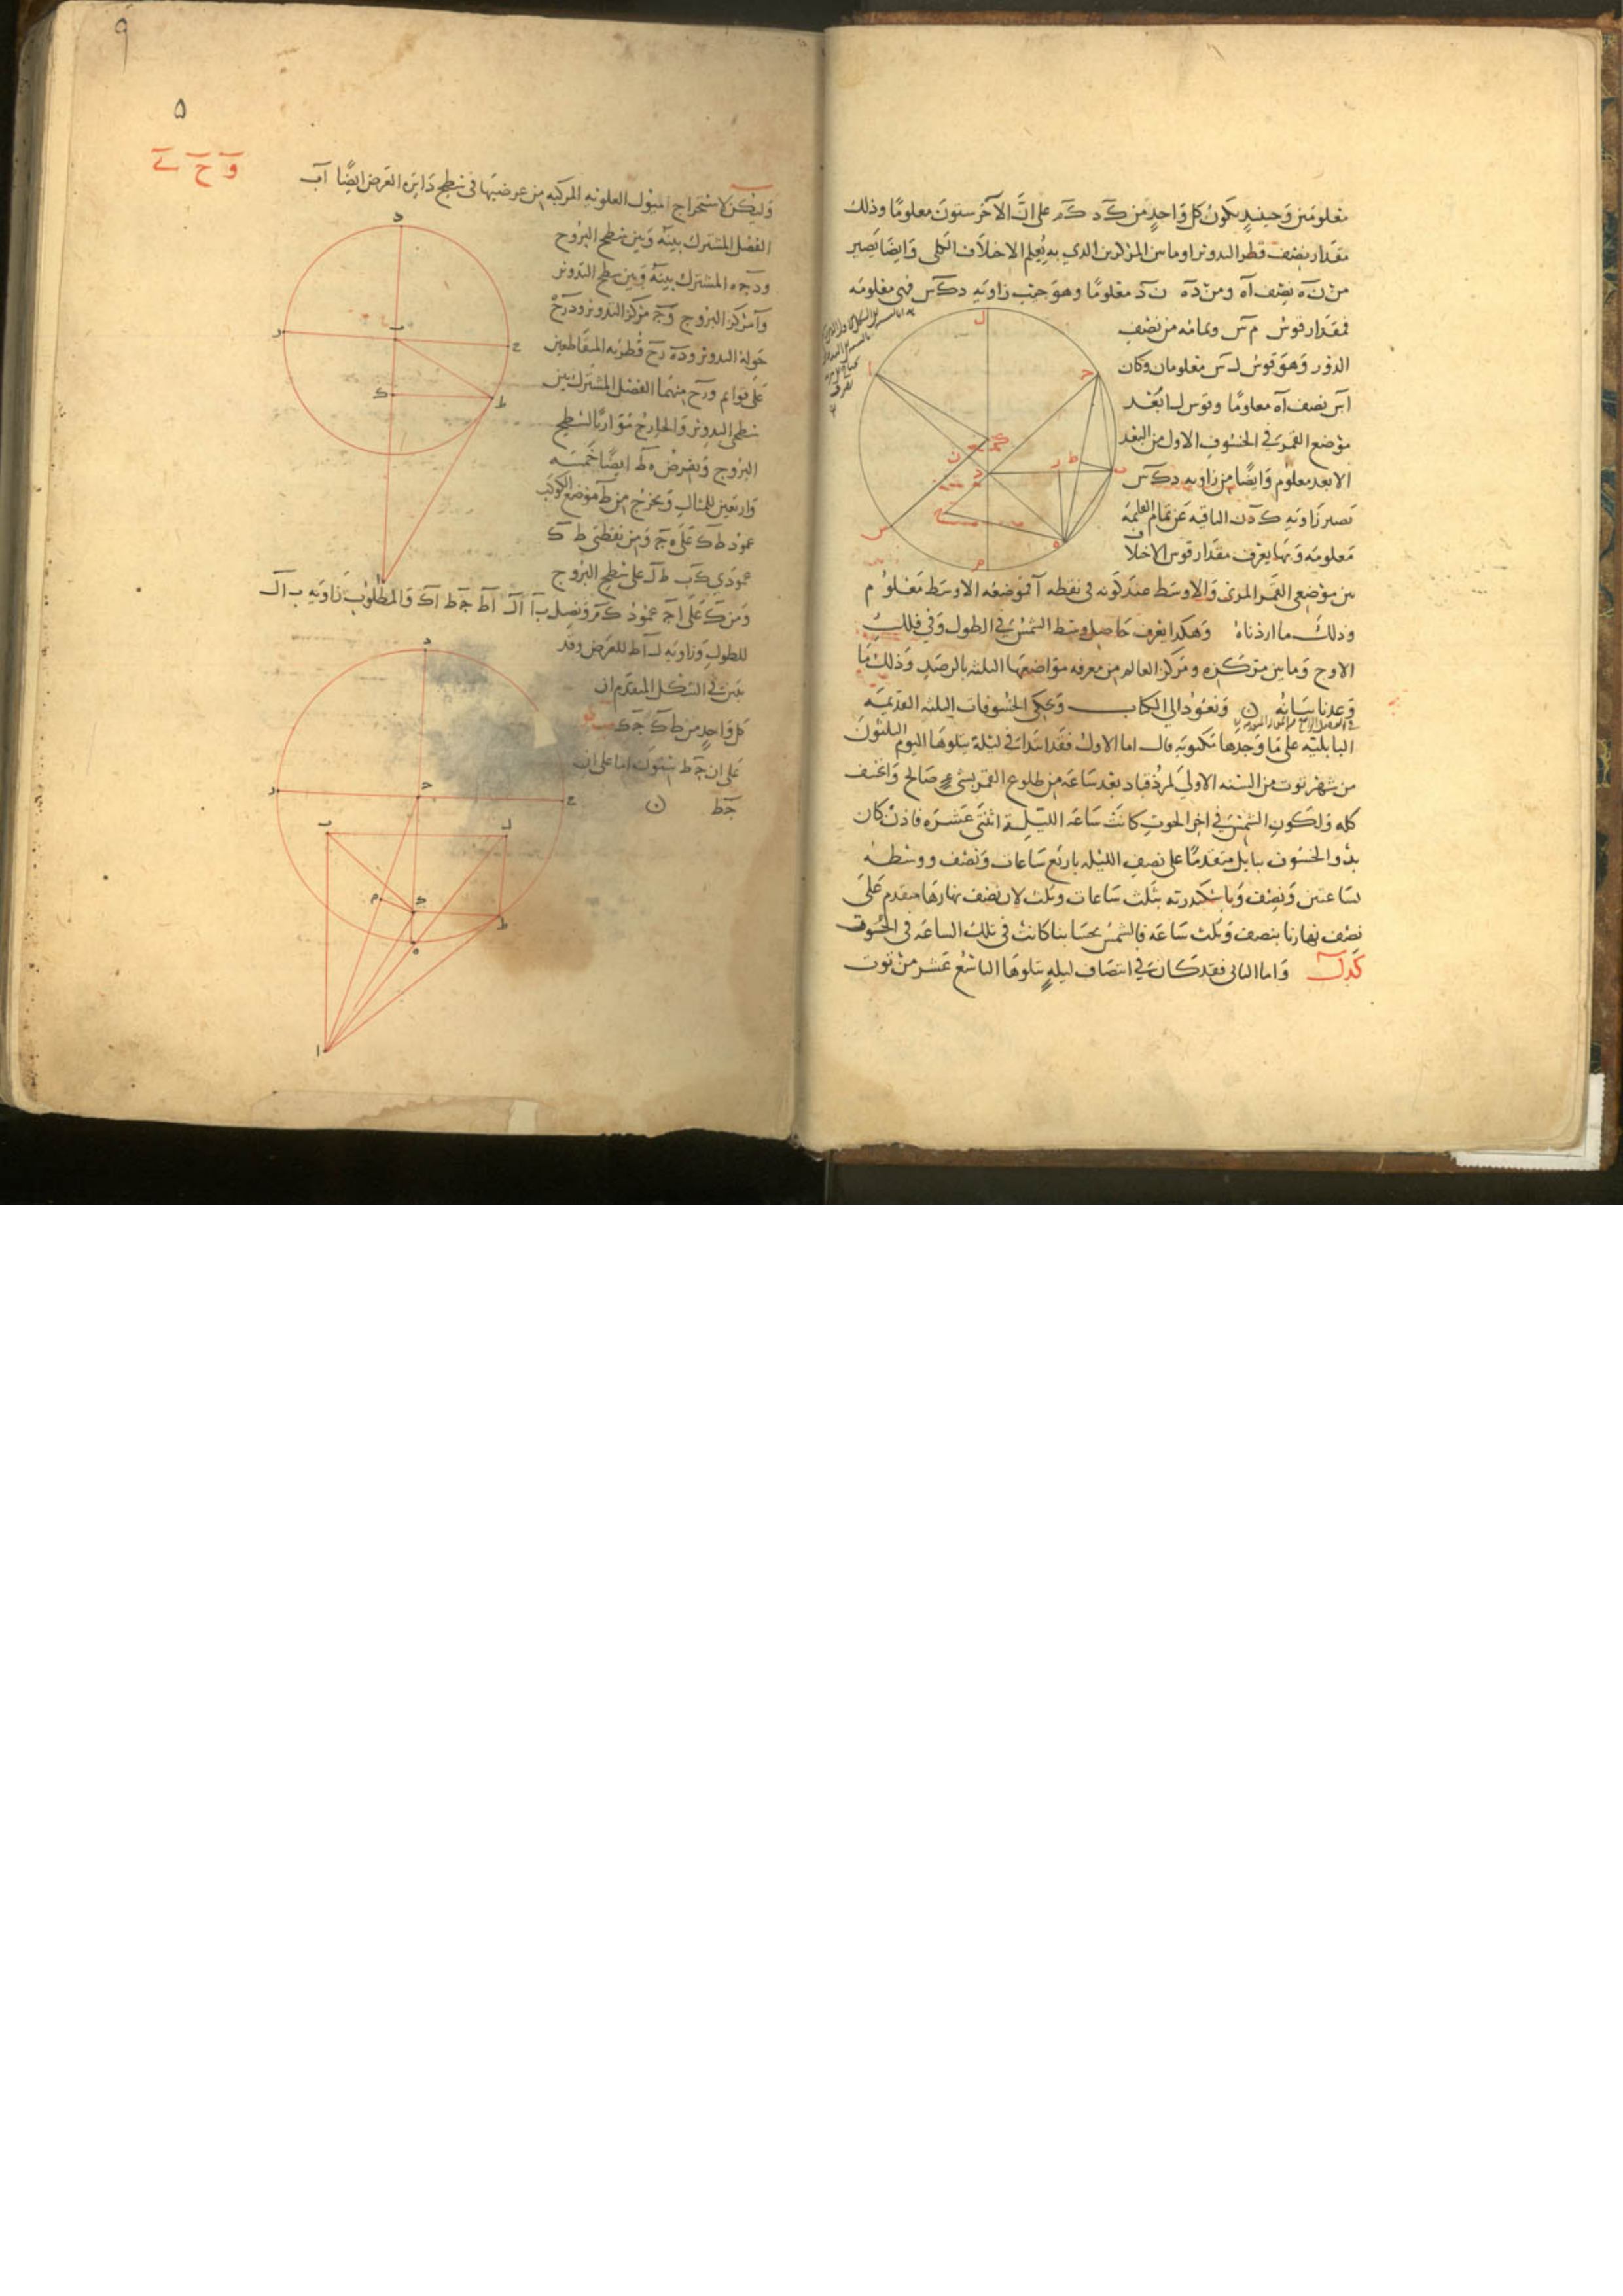 معلومين وحينئذ يكون كل واحد من كد كم على ان الآخر ستون معلوما وذلك
مقدار نصف قطر التدوير او ما بين المركزين الذي به يعلم الاختلاف الكلى وايضا يصير
من نه نصف اه ومن ده ن د معلوما وهو جيب زاويه دكس فهى معلومه
فمقدار قوس م س وتمامه من نصف
الدور وهو قوس ل س معلومان وكان
اس نصف اه معلوما وقوس ل ا بُعْد
موضع القمر في الخسوف الاول من البعد
الابعد معلوم وايضا من زاويه دكس
تصير زاويه ك د ن الباقيه عن تمام القايمه
معلومه وبها يعرف مقدار قوس الاختلاف
بين موضعى القمر المرئى والاوسط عند كونه في نقطه ا فموضعه الاوسط معلوم
وذلك ما اردناه وهكذا يعرف حاصل وسط الشمس في الطول وفي فلك
الاوج وما بين مركزه ومركز العالم من معرفه مواضعها الثلثه بالرصد وذلك ما
وعدنا بيانه ن ونعود الى الكتاب ونحكى الخسوفات الثلثه القديمه
البابليه على ما وجدها مكتوبه قال اما الاول فقد ابتدا في ليلة يتلوها اليوم الثلثون
من شهر توت من السنه الاولى لمرذقباد بعد ساعه من طلوع القمر بشئ صالح وانخسف
كله ولكون الشمس في اخر الحوت كانت ساعه الليلة اثنتى عشره فاذن كان
بدو الخسوف ببابل متقدما على نصف الليله باربع ساعات ونصف ووسطه
بساعتين ونصف وباسكندريه بثلث ساعات وثلث لان نصف نهارها متقدم على
نصف نهارنا بنصف وثلث ساعه فالشمس بحسابنا كانت في تلك الساعه في الحوت
كد ل واما الثانى فقد كان في انتصاف ليله يتلوها التاسع عشر من توت
٩
٥
و ح
وليكن لاستخراج الميول العلويه المركبه من عرضيها في سطح دايره العرض ايضا اب
الفصل المشترك بينه وبين سطح البروج
ودجه المشترك بينه وبين سطح التدوير
وا مركز البروج وج مركز التدوير ودرح
حوله التدوير وده رح قطريه المتقاطعين
على قوايم ورح منهما الفصل المشترك بين
سطحى التدوير والخارج موازيا لسطح
البروج ونفرض ه ط ايضا خمسه
واربعين للمثال ونخرج من ط موضع الكوكب
عمود طك على ه ج ومن نقطتى ط ك
عمودى كب طل على سطح البروج
ومن ك على اج عمود كم ونصل ب ا ال اط جط اك والمطلوب زاويه ب ال
للطول وزاويه ل اط للعرض وقد
تبين في الشكل المتقدم ان
كل واحد من طك جك
على ان جط ستون اما على ان
جط ن